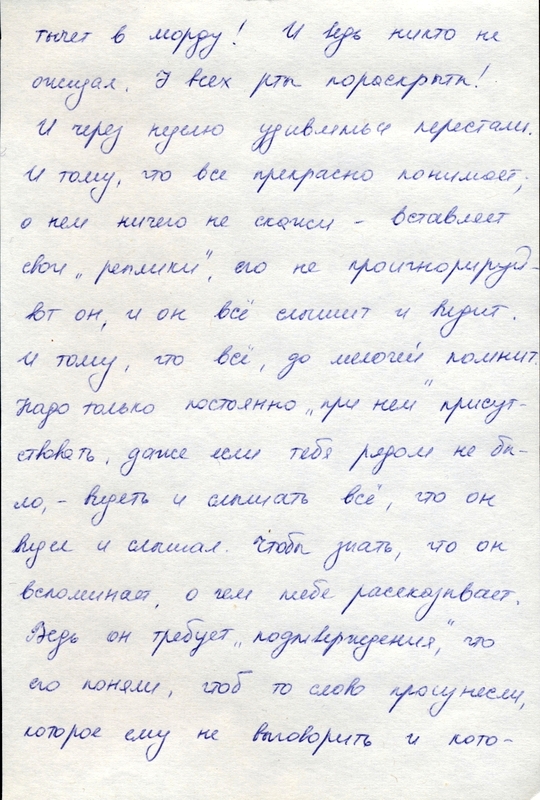 тычет в морду! И ведь никто не
ожидал. У всех рты пораскрыты!
И через неделю удивляться перестали.
И тому, что все прекрасно понимает,
о нем ничего не скажи – вставляет
свои „реплики“, его не проигнорируй –
вот он, и он всё слышит и видит.
И тому, что всё, до мелочей помнит.
Надо только постоянно „при нем“ присут-
ствовать, даже если тебя рядом не бы-
ло, – видеть и слышать всё, что он
видел и слышал. Чтобы знать, что он
вспоминает, о чем тебе рассказывает.
Ведь он требует „подтверждения“, что
его поняли, чтоб то слово произнесли,
которое ему не выговорить и кото-